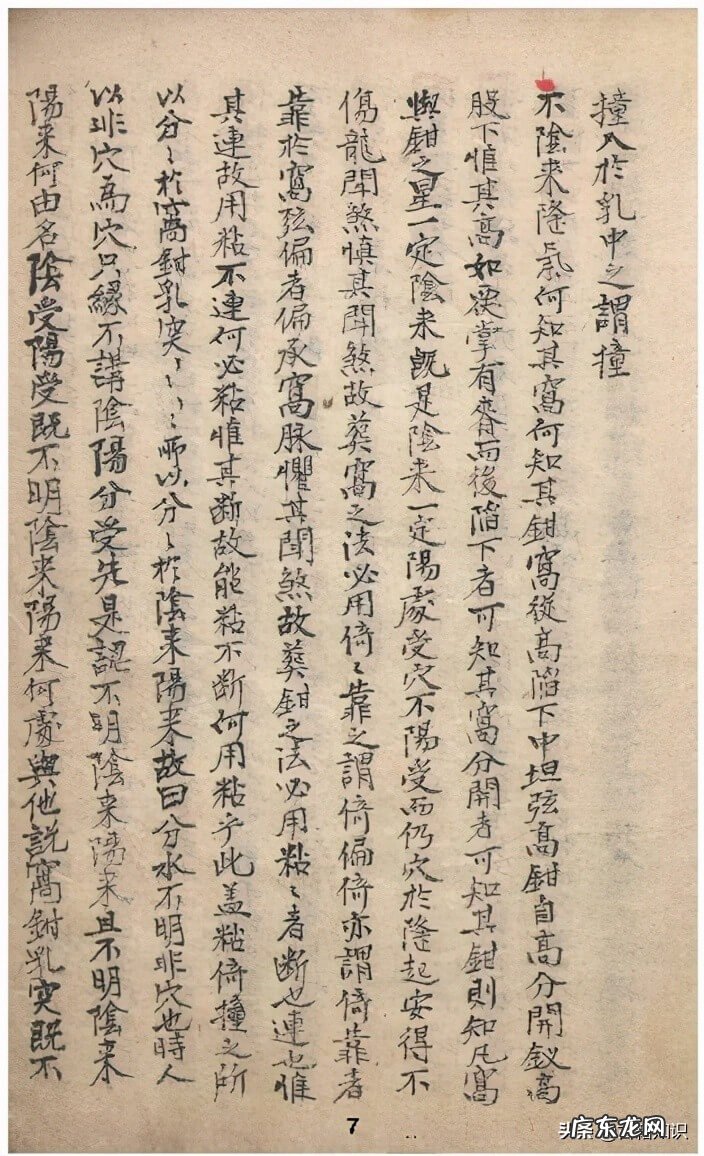 撞入於乳中之謂撞
不陰来隆氣何知其窩何知其鉗窩從高陷下中坦弦高鉗自高分開釵高
股下惟其高如㢲掌有脊而後陷下者可知其窩分開者可知其鉗則知凡窩
與鉗之星一定陰来既是陰来一定陽處受穴不陽受而仍穴於隆起安得不
傷龍聞煞慎其聞煞故葬窩之法必用倚〻靠之謂倚偏倚亦謂倚靠者
靠於窩弦偏者偏承窩脉懼其聞煞故葬鉗之法必用粘〻者断也連也惟
其連故用粘不連何必粘惟其断故能粘不断何用粘乎此盖粘倚撞之所
以分〻於窩鉗乳突〻〻〻〻所以分〻於陰来陽来故曰分水不明非穴也時人
以非穴為穴只緣不講陰陽分受先是認不明陰来陽来且不明陰来
陽来何由名陰受陽受既不明陰来陽来何處與他説窩鉗乳突既不
7
头条
广东龙网
知识